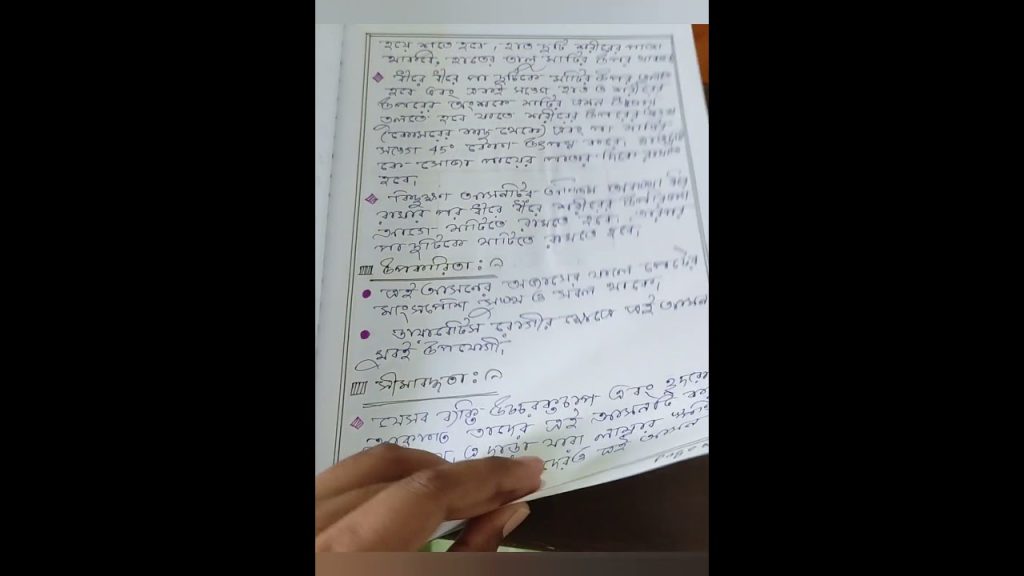 হয়ে শুতে হবে, হাত দুটি শরীরের পাশে
থাকবে, হাতের তালু মাটির উপর থাকবে
ধীরে ধীরে পা দুটিকে মাটির উপর তুলতে
হবে এবং একই সঙ্গে হাত ও শরীরের
উপরের অংশকে মাটির এমন
তুলতে হবে যাতে শরীরের উপরের অংশ
(কোমরের থেকে) এবং পা মাটির
সঙ্গে 45° কোণ উৎপন্ন করে।
কে সোজা পায়ের পাতার দিকে রাখতে
হবে।
কিছুক্ষণ আসনটির
রাখার পর ধীরে ধীরে শরীরের উপরের
আগে মাটিতে রাখতে হবে। তারপর
পা দুটিকে মাটিতে রাখতে হবে।
উপকারিতা :
এই আসনের অভ্যাসের ফলে পেটের
মাংসপেশি সুস্থ ও সবল থাকে।
ডায়াবেটিস রোগীর ক্ষেত্রে এই আসন
খুবই উপযোগী।
সীমাবদ্ধতা :
যেসব ব্যক্তি উচ্চরক্তচাপ এবং হৃদরোগে
তাদের এই আসনটি
ও ছাড়া যারা
এই আসন